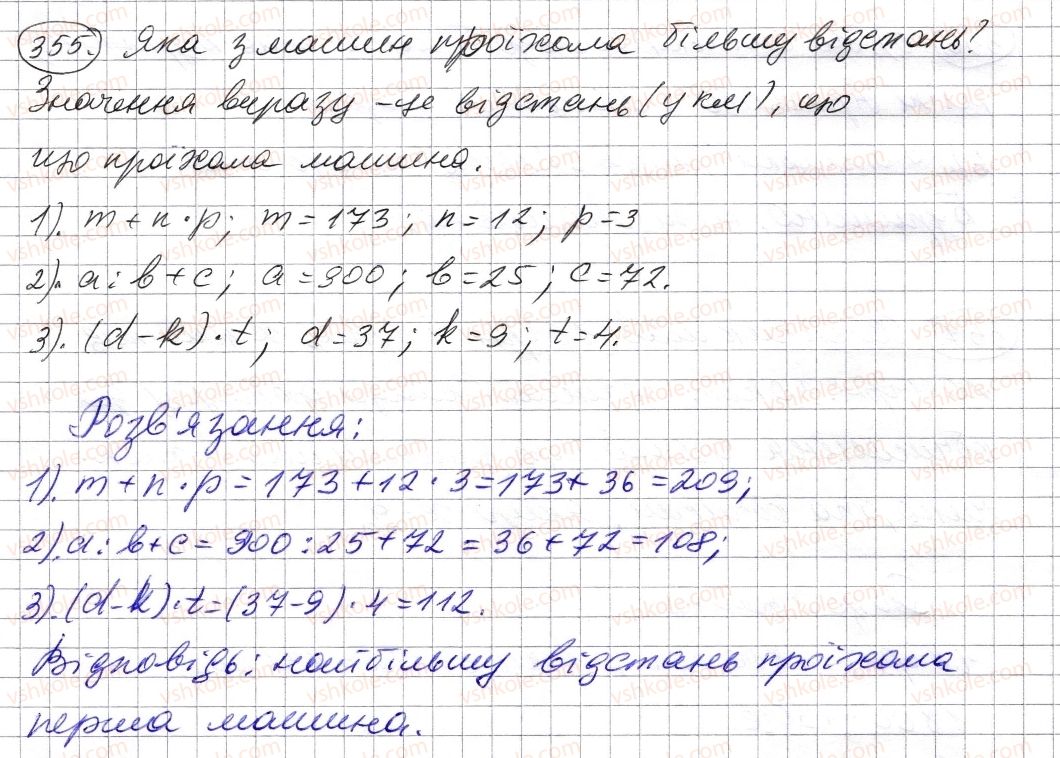 355. Яка з машин проїхала більшу відстань?
Значення виразу – це відстань (у км), що
що проїхала машина.
1). m + n · p; m = 173; n = 12; p = 3
2). a : b + c; a = 900; b = 25; c = 72.
3). (d – k) · t; d = 37; k = 9; t = 4.
Розв'язання:
1). m + n · p = 173 + 12 · 3 = 173 + 36 = 209;
2). a : b + c = 900 : 25 + 72 = 36 + 72 = 108;
3). (d – k) · t = (37 – 9) · 4 = 112.
Відповідь: найбільшу відстань проїхала
перша машина.
vshkole.com